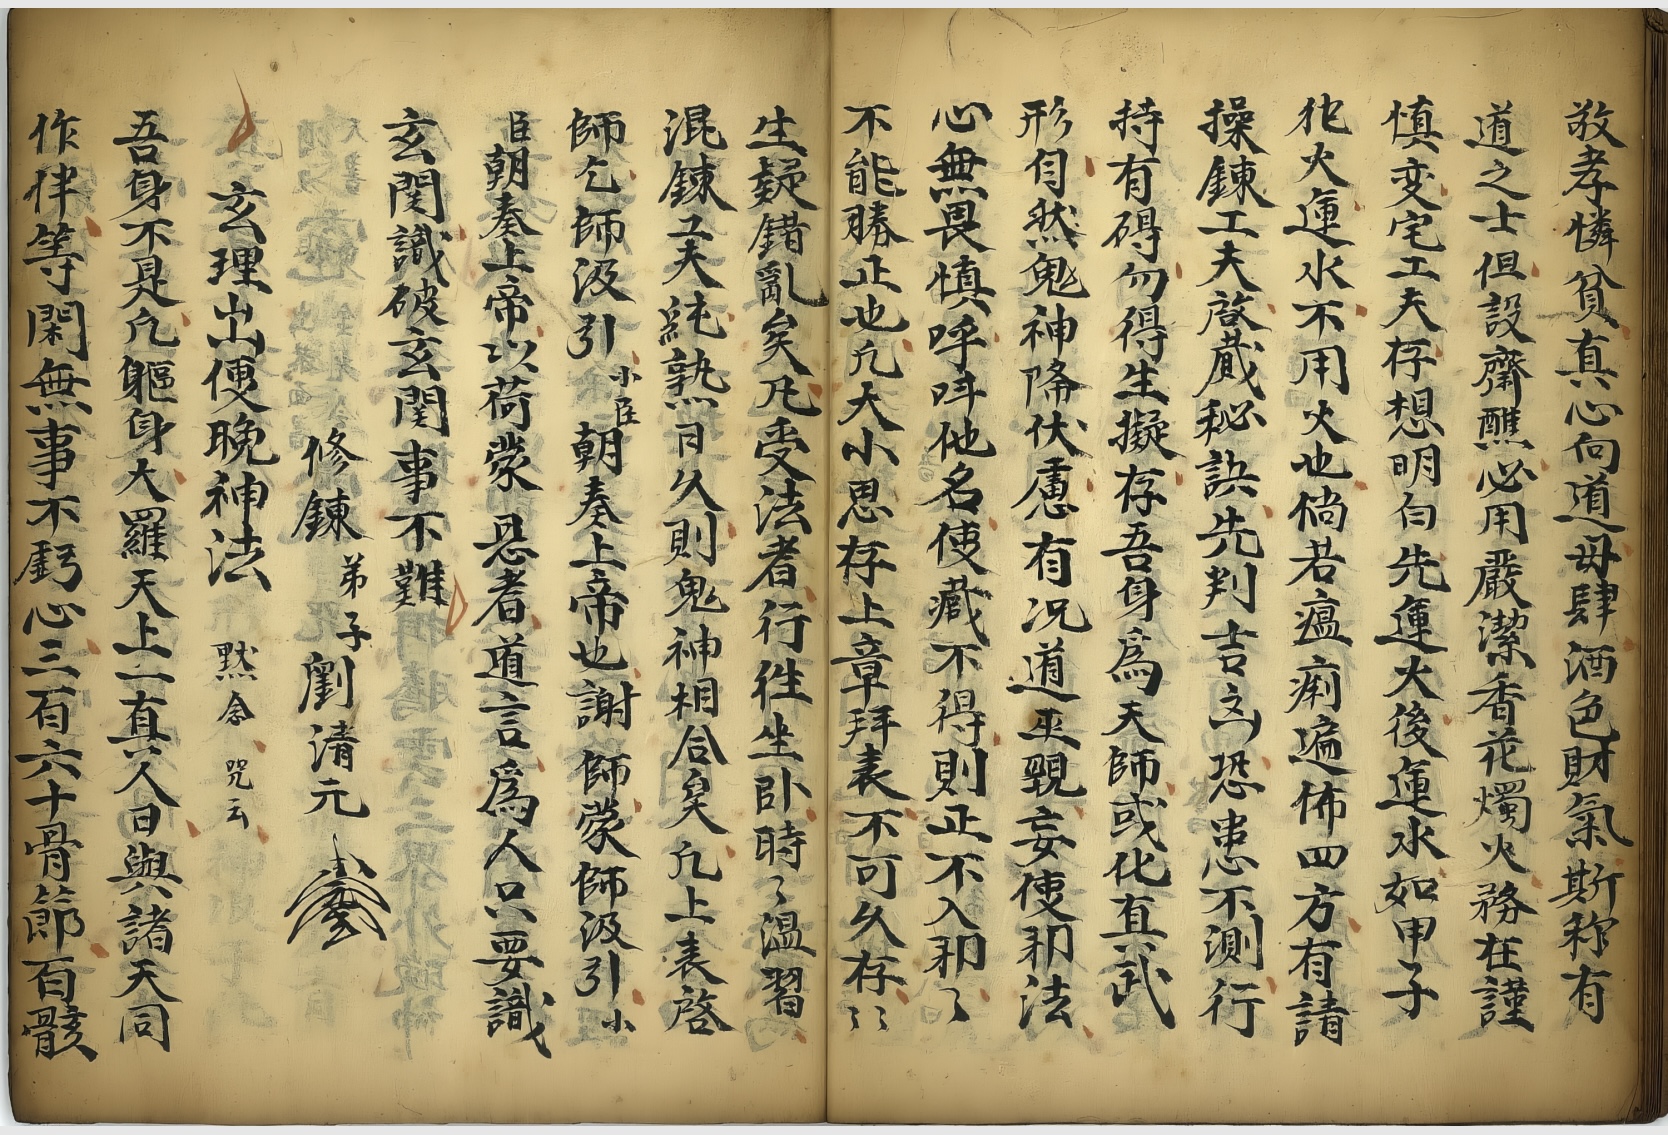 敬孝憐貧真心向道毋肆酒色財氣斯称有
道之士但設齋醮必用嚴潔香花燭火務在謹
慎变宅工夫存想明白先運火後運水如甲子
化火運水不用火也倘若瘟痢遍佈四方有請
操鍊工夫啓蔵秘訣先判吉凶恐患不測行
持有碍勿得生擬存吾身為天師或化真武
形自然鬼神降伏慮有况道巫覡妄使邪法
心無畏慎呼呌他名使藏不得則正不入邪了
不能勝正也凢大小思存上章拜表不可久存ミ
生疑錯亂矣凢受法者行徃坐卧時ミ温習
混鍊工夫純熟日久則鬼神相合矣凢上表啓
師乞師汲引小臣朝奏上帝也謝師蒙師汲引小
臣朝奏上帝以荷蒙恩者道言為人只要識
玄関識破玄関事不難
修鍊弟子劉清元
玄理出便晚神法 黙念咒云
吾身不是凢軀身大羅天上一真人日與諸天同
作伴等閑無事不虧心三百六十骨節百骸